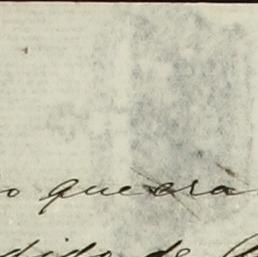 o que era
dido de